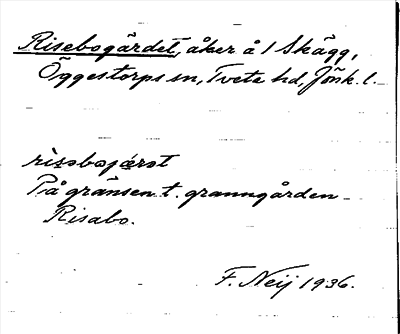 Risebogärdet, åker å 1 Skägg,
Öggestorps sn, Tveta hd, Jönk. l.
På gränsen t. granngården
Risabo.
F. Neij 1936.